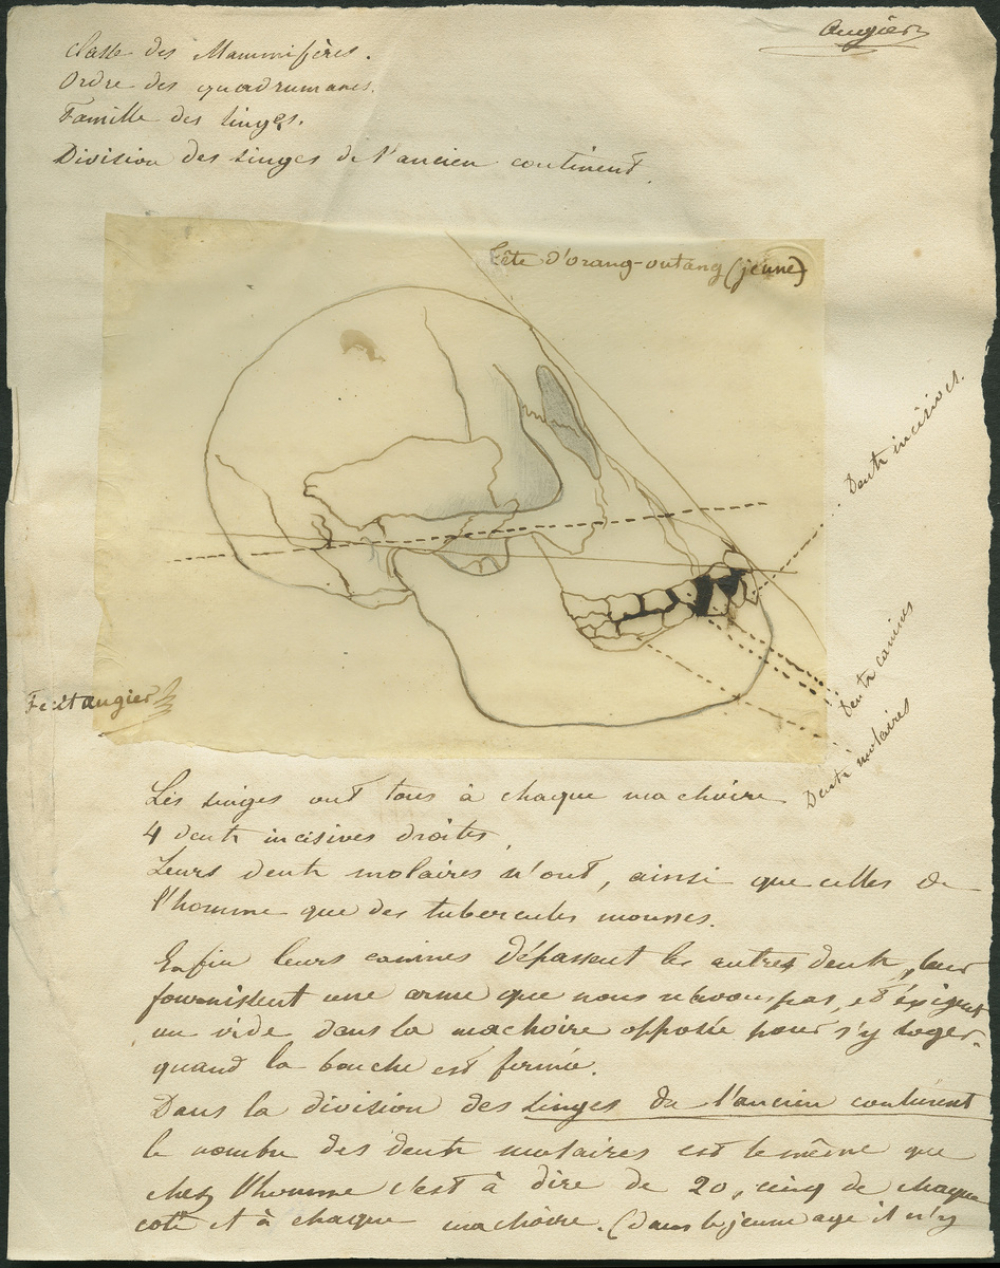 Augier
Classe des Mammifères.
Ordre des quadrumanes.
Famille des singes.
Division des singes de l'ancien continent.
Tête d'orang-outang (jeune)
Dents incisives.
Dents canines
Dents molaires
Fecit augier
Les singes ont tous à chaque machoire
4 dents incisives droites.
Leurs dents molaires n'ont, ainsi que celles de
l'homme que des tubercules mousses.
Enfin leurs canines dépassent les autres dents, leur
fournissent une arme que nous n'avons pas, et exigent
un vide dans la machoire opposée pour s'y loger
quand la bouche est fermée.
Dans la division des singes de l'ancien continent
le nombre des dents molaires est le même que
chez l'homme c'est à dire de 20, cinq de chaque
coté et à chaque machoire. (dans le jeune age il n'y